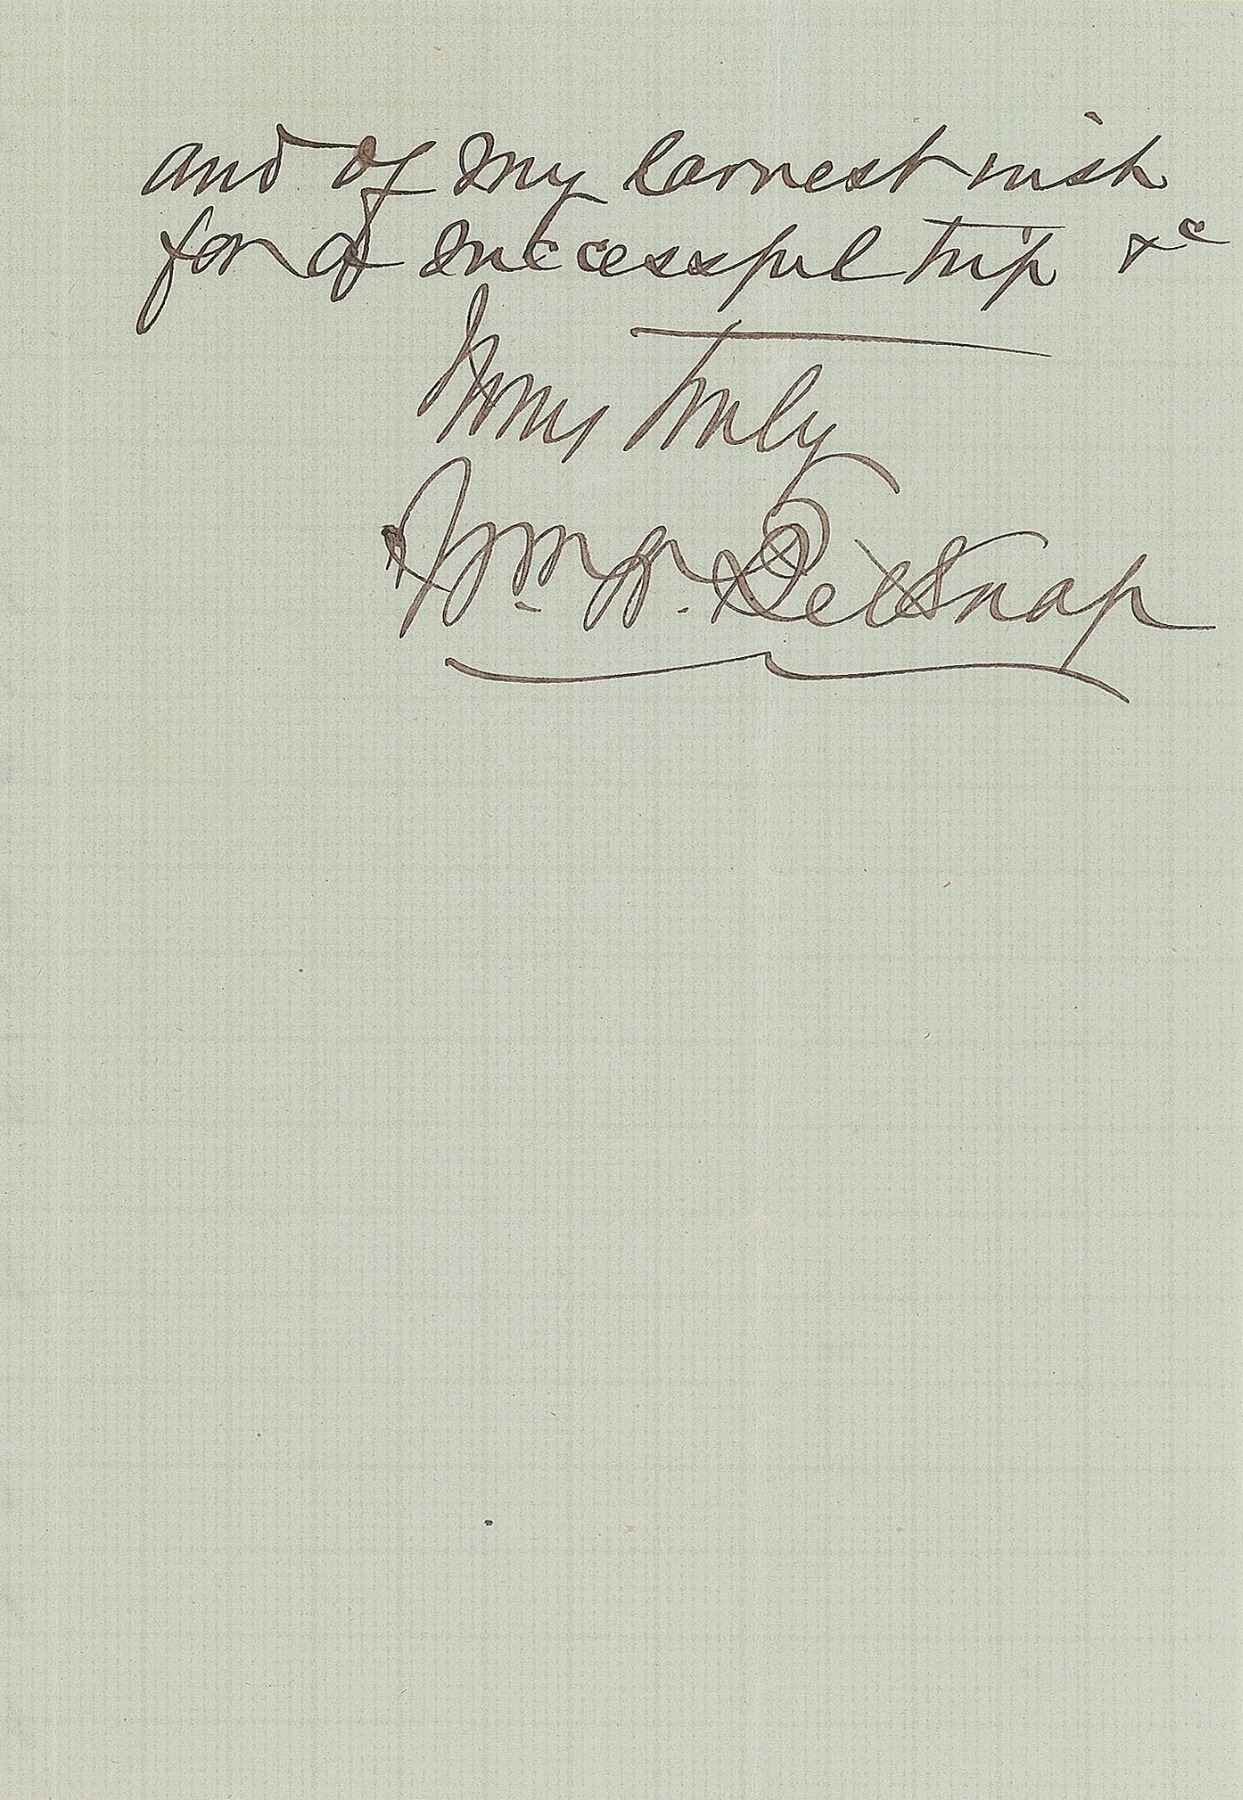 and of my earnest wish
for a successful trip &c
Yours truly
Wm. W. Belknap